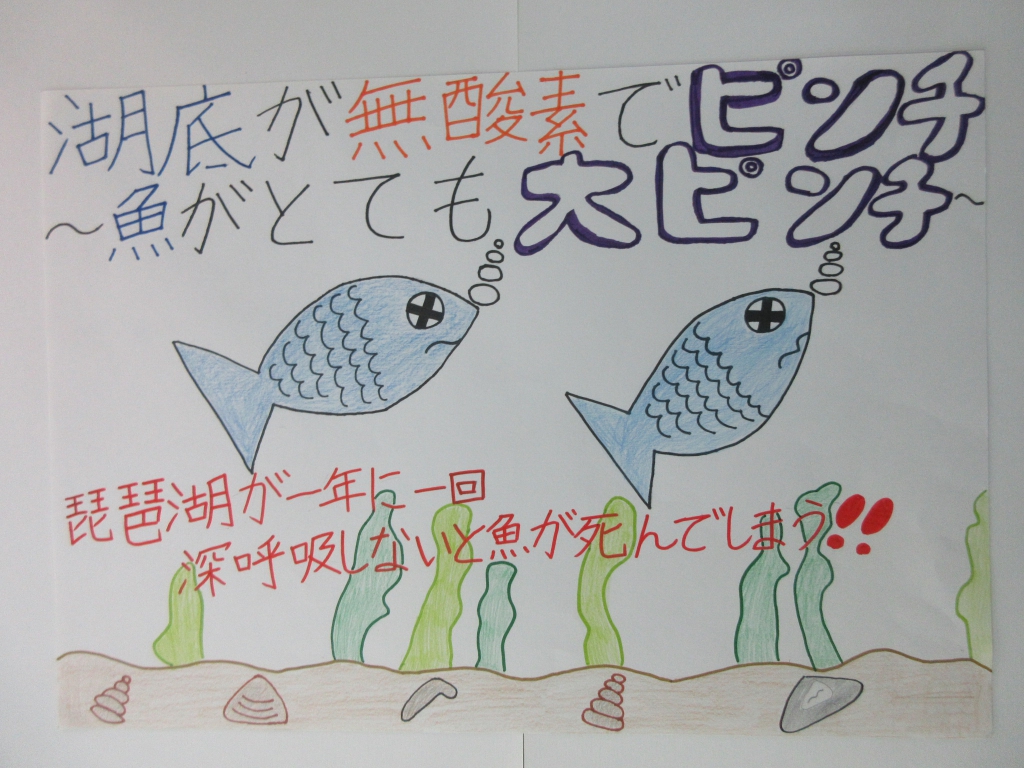 湖底が無酸素でピンチ
～魚がとても大ピンチ～
琵琶湖が一年に一回
深呼吸しないと魚が死んでしまう!!